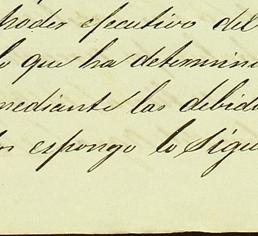 poder efecutivo del
lo que ha determina
mediante las debida
espongo lo sigu